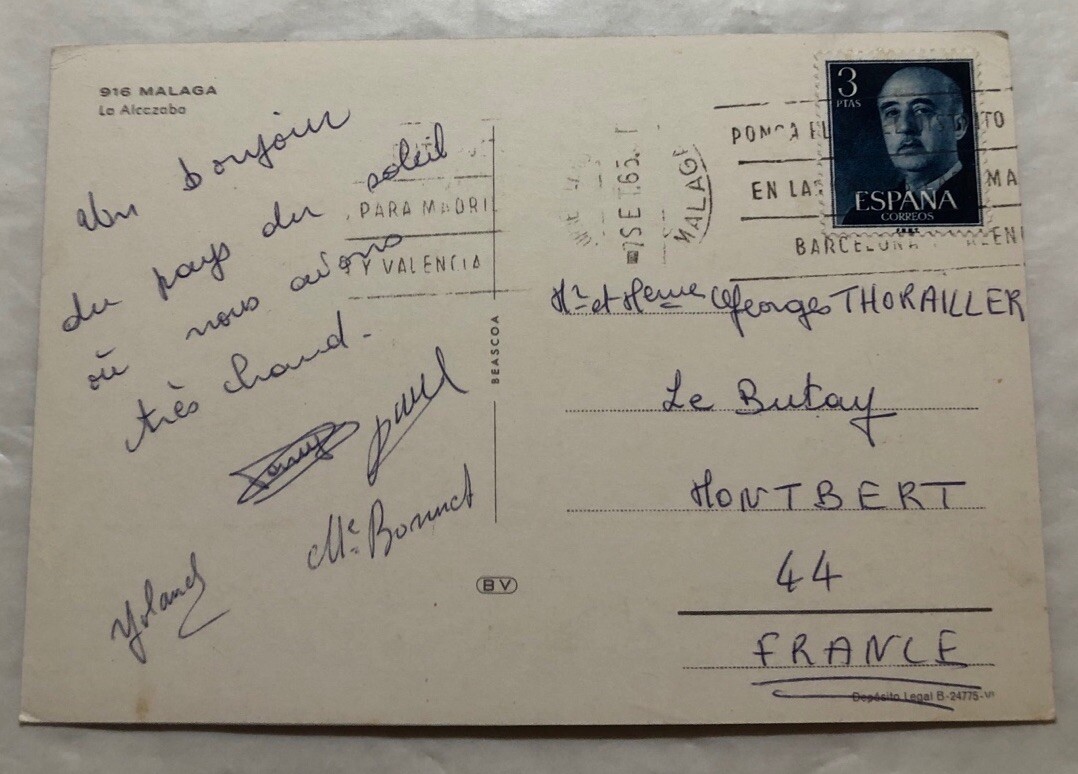 916 MALAGA
La Alcazaba
un bonjour
du pays du soleil
où nous avons
très chaud.
paul
Me Bonnet
Yoland
PARA MADRI
Y VALENCIA
BEASCOA
BV
7 SET. 65
MALAG
PONGA EL
ITO
EN LAS
MA
BARCELONA
ALEN
3
PTAS
ESPAÑA
CORREOS
Mr et Meme Georges THORAILLER
Le Butay
MONTBERT
44
FRANCE
Depósito Legal B-24775-VI